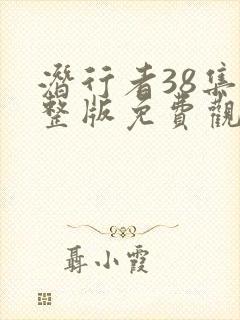 潛行者38集
整版免費觀
聶小霞